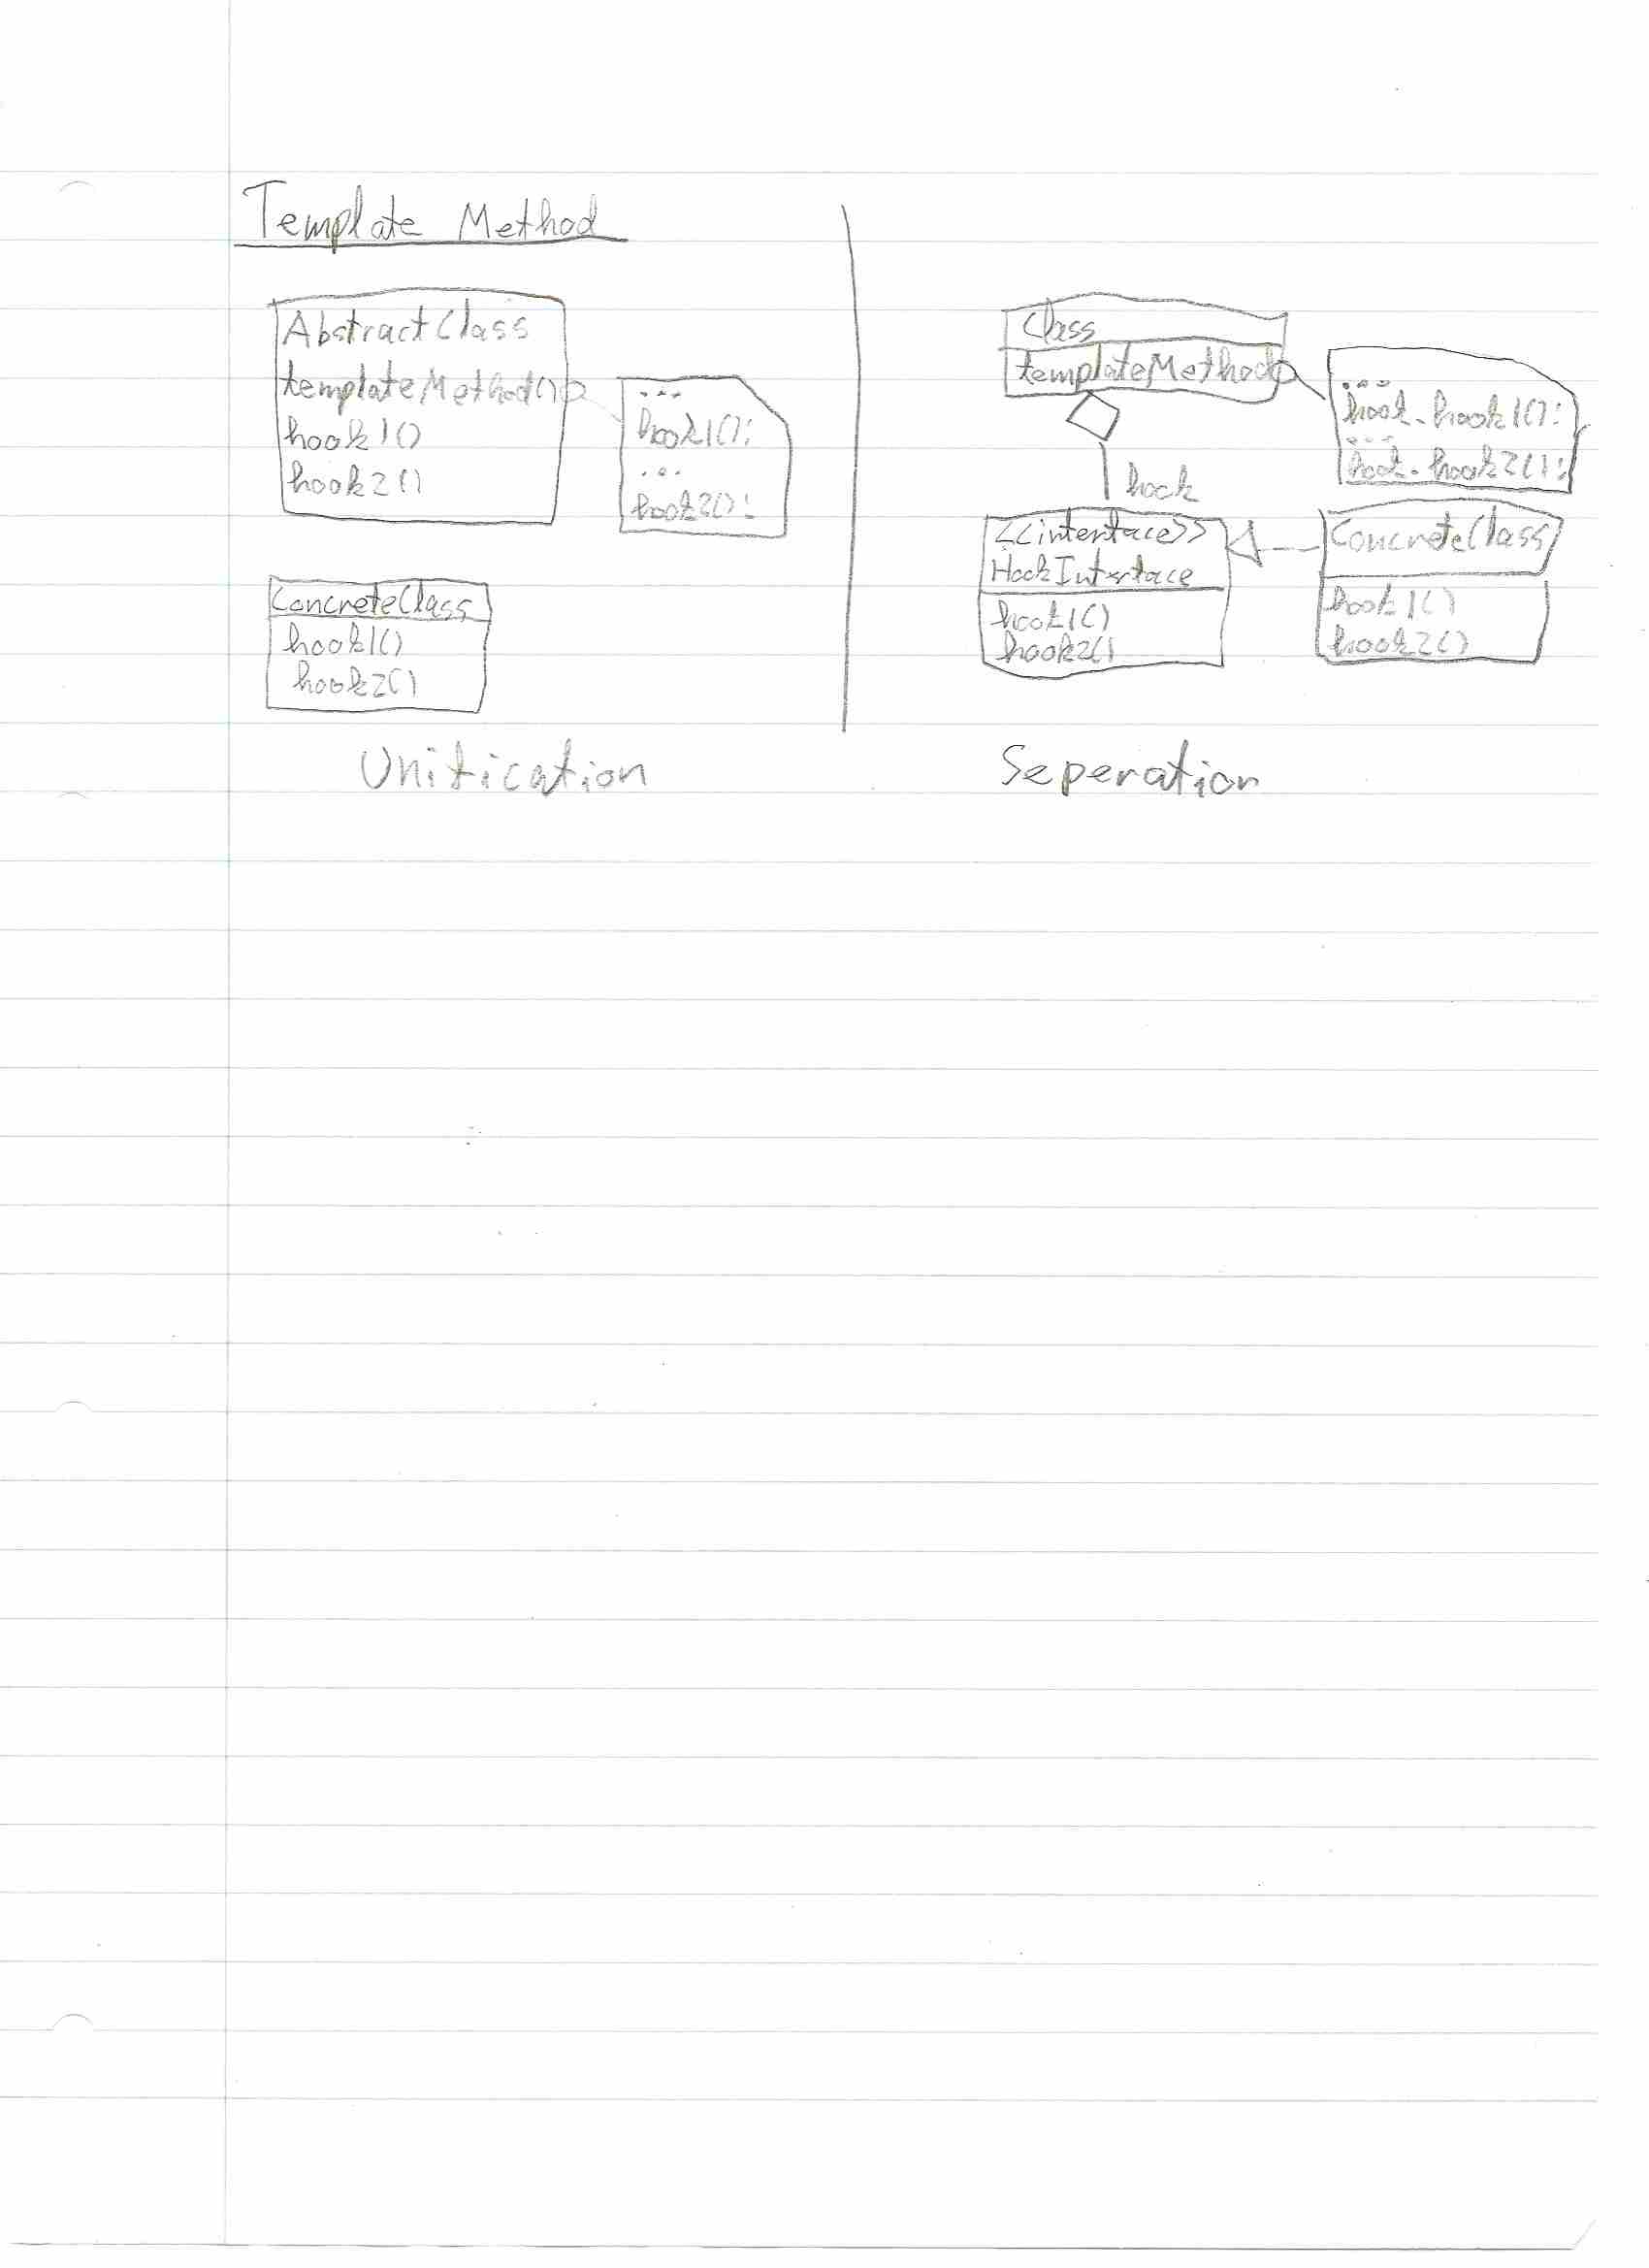 Template Method
AbstractClass
templateMethod()
hook1()
hook2()
...
hook1();
...
hook2();
ConcreteClass
hook1()
hook2()
Unification
Class
templateMethod
...
hook.hook1();
...
hook.hook2();
hook
<<interface>>
HookInterface
hook1()
hook2()
ConcreteClass
hook1()
hook2()
Seperation